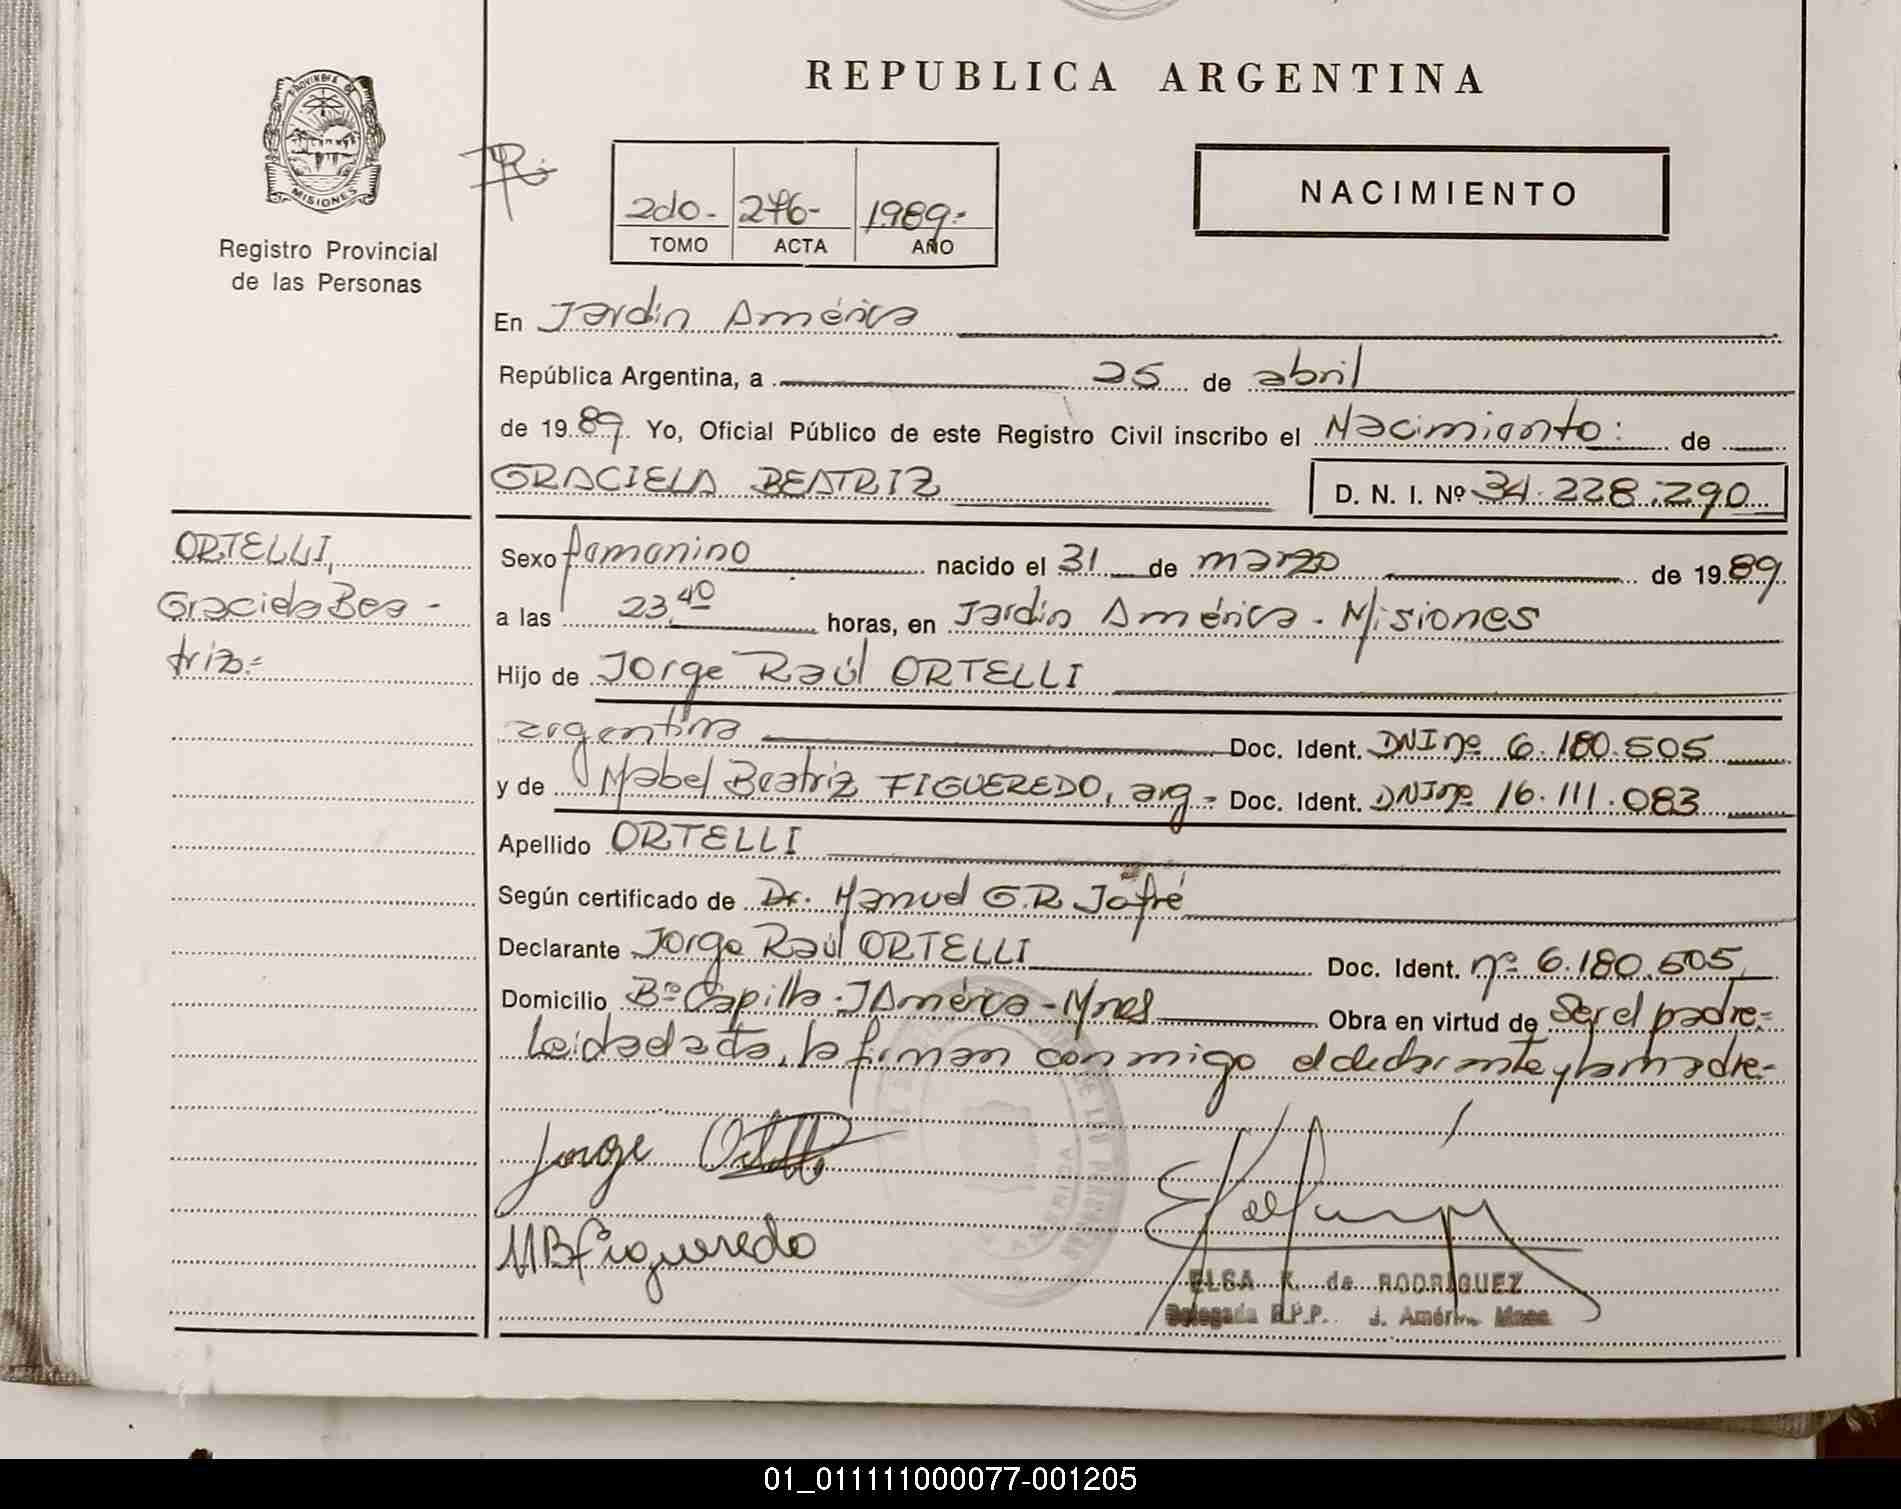 REPUBLICA ARGENTINA
PROVINCIA DE
MISIONES
Registro Provincial
de las Personas
2do.- 276- 1989.-
TOMO ACTA AÑO
NACIMIENTO
En Jardín América
República Argentina, a 25 de abril
de 1989. Yo, Oficial Público de este Registro Civil inscribo el Nacimiento: de
GRACIELA BEATRIZ D. N. I. Nº 34.228.290
ORTELLI,
Graciela Bea-
triz.=
Sexo femenino nacido el 31 de marzo de 1989
a las 23,40 horas, en Jardín América - Misiones
Hijo de Jorge Raúl ORTELLI
argentina Doc. Ident. DNI nº 6.180.505
y de Mabel Beatriz FIGUEREDO, arg- Doc. Ident. DNI nº 16.111.083
Apellido ORTELLI
Según certificado de Dr. Manuel G.R. Jofré
Declarante Jorge Raúl ORTELLI Doc. Ident. nº 6.180.505,
Domicilio Bº Capilla. J América - Mnes Obra en virtud de Ser el padre.=
Leida el acta, la firman conmigo el declarante y la madre.-
Jorge Ortelli
MBFigueredo
ELSA K. de RODRIGUEZ
Delegada R.P.P. J. América Mnes.
01_011111000077-001205